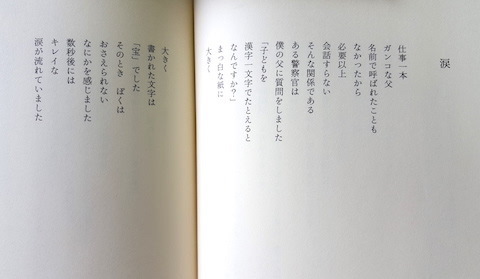 涙
仕事一本
ガンコな父
名前で呼ばれたことも
なかったから
必要以上
会話すらない
そんな関係である
ある警察官は
僕の父に質問をしました
「子どもを
漢字一文字でたとえると
なんですか?」
まっ白な紙に
大きく
大きく
書かれた文字は
「宝」でした
そのとき ぼくは
おさえられない
なにかを感じました
数秒後には
キレイな
涙が流れていました